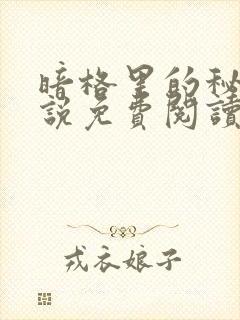 暗格里的秘
說免費閱讀
戎衣娘子